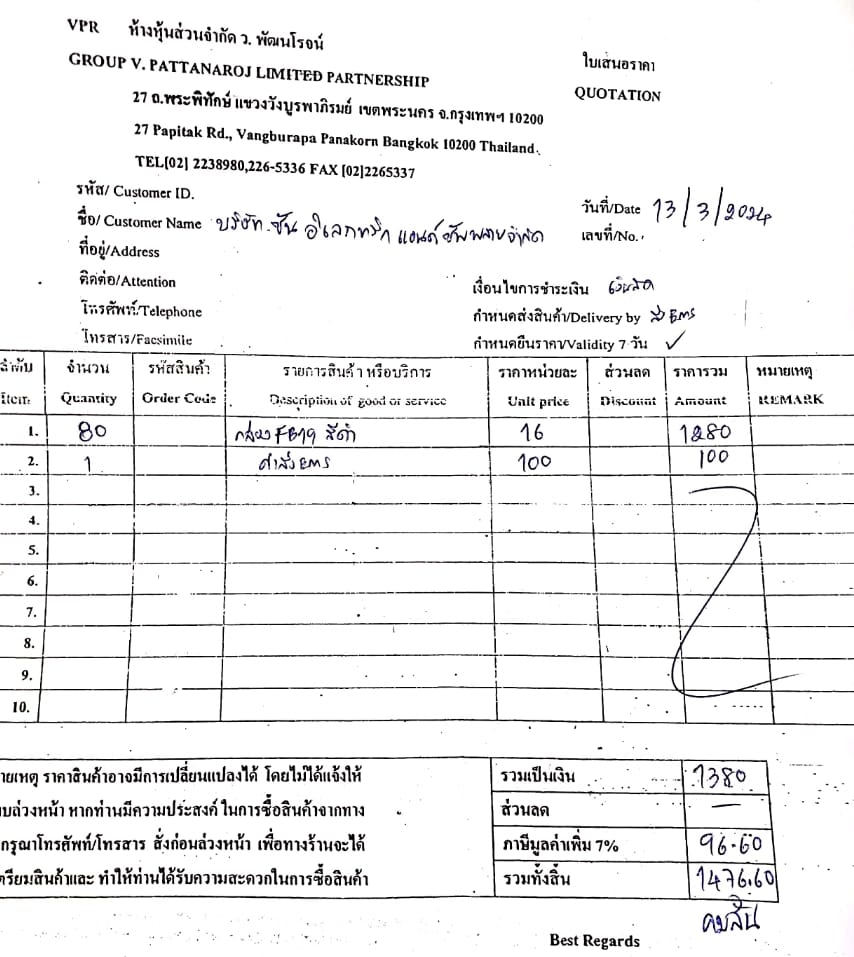 VPR ห้างหุ้นส่วนจำกัด ว. พัฒนโรจน์
GROUP V. PATTANAROJ LIMITED PARTNERSHIP
ใบเสนอราคา
QUOTATION
27 ถ.พระพิทักษ์ แขวงวังบูรพาภิรมย์ เขตพระนคร จ.กรุงเทพฯ 10200
27 Papitak Rd., Vangburapa Panakorn Bangkok 10200 Thailand.
TEL[02] 2238980,226-5336 FAX [02]2265337
รหัส/ Customer ID.
ชื่อ/ Customer Name บริษัท ซัน อิเลคทริก แอนด์ ซัพพลาย จำกัด
วันที่/Date 13/3/2024
ที่อยู่/Address
เลขที่/No.
ติดต่อ/Attention
เงื่อนไขการชำระเงิน เงินสด
โทรศัพท์/Telephone
กำหนดส่งสินค้า/Delivery by ส่ง EMS
โทรสาร/Facsimile
กำหนดยืนราคา/Validity 7 วัน ✓
ลำดับ จำนวน รหัสสินค้า รายการสินค้า หรือบริการ ราคาหน่วยละ ส่วนลด ราคารวม หมายเหตุ
Item Quantity Order Code Description of good or service Unit price Discount Amount REMARK
1. 80 กล่อง FB19 สีดำ 16 1280
2. 1 ค่าส่ง EMS 100 100
3.
4.
5.
6.
7.
8.
9.
10.
ายเหตุ ราคาสินค้าอาจมีการเปลี่ยนแปลงได้ โดยไม่ได้แจ้งให้
รวมเป็นเงิน 1380
บล่วงหน้า หากท่านมีความประสงค์ ในการซื้อสินค้าจากทาง
ส่วนลด —
กรุณาโทรศัพท์/โทรสาร สั่งก่อนล่วงหน้า เพื่อทางร้านจะได้
ภาษีมูลค่าเพิ่ม 7% 96.60
ตรียมสินค้าและ ทำให้ท่านได้รับความสะดวกในการซื้อสินค้า
รวมทั้งสิ้น 1476.60
คมสัน
Best Regards